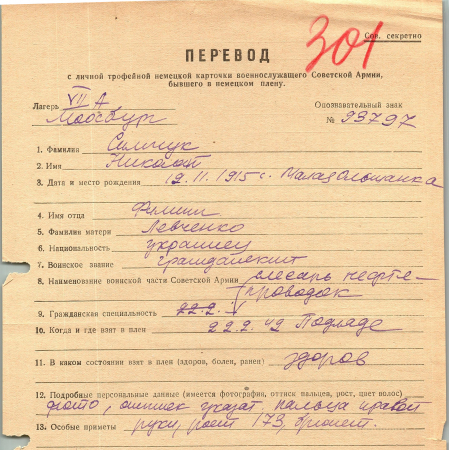 Сов. секретно
301
ПЕРЕВОД
с личной трофейной немецкой карточки военнослужащего Советской Армии,
бывшего в немецком плену.
Лагерь VII A
Моосбург
Опознавательный знак
№ 93797
1. Фамилия Симчук
2. Имя Николай
3. Дата и место рождения 19.11.1915 г. Малая Ольшанка
4. Имя отца Филипп
5. Фамилия матери Левченко
6. Национальность украинец
7. Воинское звание гражданский
8. Наименование воинской части Советской Армии слесарь нефте-
проводок
9. Гражданская специальность 22.2.
10. Когда и где взят в плен 22.2.42
11. В каком состоянии взят в плен (здоров, болен, ранен) здоров
12. Подробные персональные данные (имеется фотография, оттиск пальцев, рост, цвет волос)
фото, оттиск указат пальца правой
13. Особые приметы руки, рост 173, брюнет.